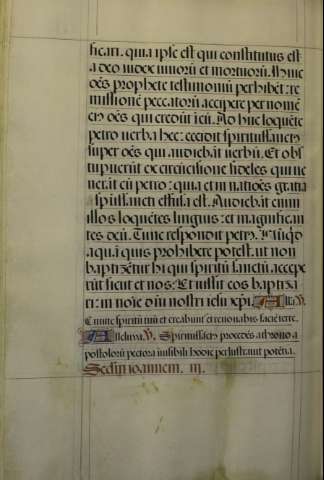 ficari. quia ipse est qui constitutus est
a deo iudex uiuorū et mortuorū. Huic
oēs prophete testimoniū perhibēt: re
missionē peccatorū accipere per nomē
eius oēs qui credūt in eū. Adhuc loquēte
petro uerba hec: cecidit spiritussanctus
super oēs qui audiebāt uerbū. Et obs
tupuerūt ex circūcisione fideles qui ue
nerāt cū petro: quia et in natiōes gratia
spiritussancti effusa est. Audiebāt enim
illos loquētes linguis: et magnifican
tes deū. Tunc respondit petrus. Nūqd
aquā quis prohibere potest. ut non
baptizētur hi qui spiritū sanctū accepe
rūt sicut et nos: Et iussit eos baptiza
ri: in noīe dn̄i nostri iesu xp̄i. Alla. V.
Emitte spiritū tuū et creabunt et renouabis faciē terre.
Alleluya. V. Spiritussanctus procedēs a throno a
postolorū pectora inuisibili hodie perlustrauit potētia.
Secdm ioannem. iii.